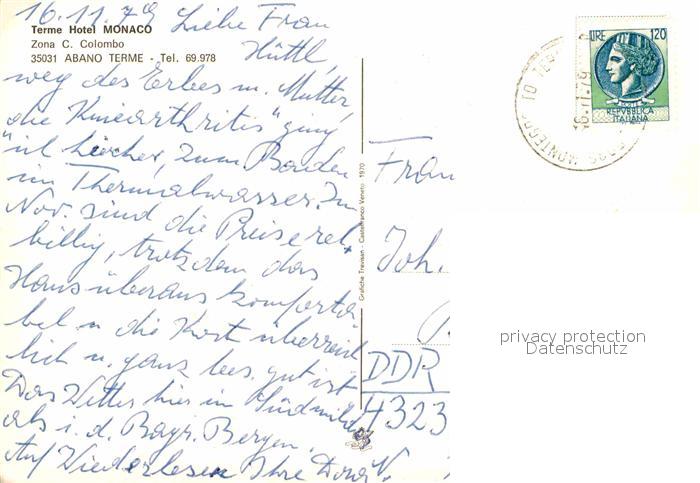 16.11.79 Liebe Frau
Terme Hotel MONACO
Zona C. Colombo
35031 ABANO TERME - Tel. 69.978
Hüttl,
weg des Erbes m. Mutter,
die Kniearthritis" ging
zum Baden
im Thermalwasser. Im
Nov. sind die Preise rel.
billig, trotzdem das
Haus überaus komforta
bel u die Kost überreich
lich u. ganz bes. gut ist
Das Wetter hier im Süd milder
als i. d. Bayr. Bergen.
Auf Wiederlesen Ihre
Grafiche Trevisan - Castelfranco Veneto 1970
LIRE 120
REPVBBLICA
ITALIANA
16.11.79
Frau
Joh.
DDR
4323
privacy protection
Datenschutz